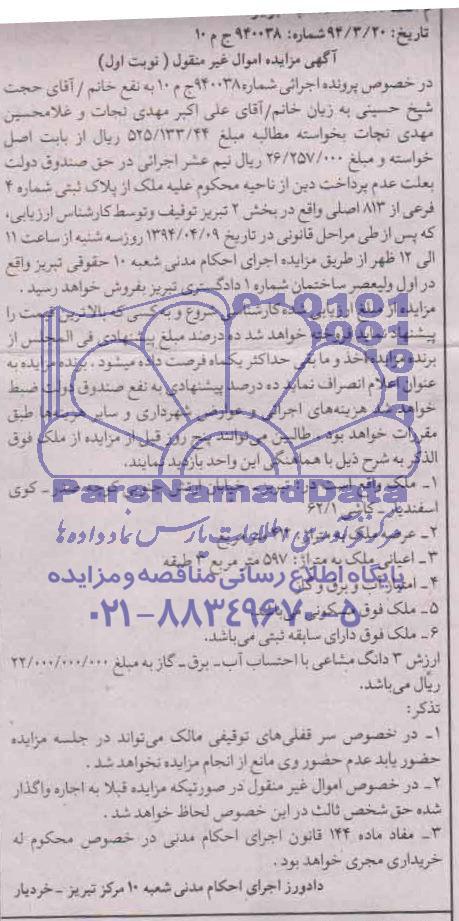 تاریخ: ۹۴/۳/۲۰ شماره: ۹۴۰۰۳۸ ج م ۱۰
آگهی مزایده اموال غیر منقول ( نوبت اول)
در خصوص پرونده اجرائی شماره ۹۴۰۰۳۸ ج م ۱۰ به نفع خانم / آقای حجت
شیخ حسینی به زیان خانم/آقای علی اکبر مهدی نجات و غلامحسین
مهدی نجات بخواسته مطالبه مبلغ ۵۲۵/۱۳۳/۴۴ ریال از بابت اصل
خواسته و مبلغ ۲۶/۲۵۷/۰۰۰ ریال نیم عشر اجرائی در حق صندوق دولت
بعلت عدم پرداخت دین از ناحیه محکوم علیه ملک از پلاک ثبتی شماره ۴
فرعی از ۸۱۳ اصلی واقع در بخش ۲ تبریز توقیف وتوسط کارشناس ارزیابی،
که پس از طی مراحل قانونی در تاریخ ۱۳۹۴/۰۴/۰۹ روزسه شنبه از ساعت ۱۱
الی ۱۲ ظهر از طریق مزایده اجرای احکام مدنی شعبه ۱۰ حقوقی تبریز واقع
در اول ولیعصر ساختمان شماره ۱ دادگستری تبریز بفروش خواهد رسید .
مزایده از مبلغ ارزیابی شده کارشناسی شروع و به کسی که بالاترین قیمت را
پیشنهاد نماید فروخته خواهد شد ده درصد مبلغ پیشنهادی فی المجلس از
برنده مزایده اخذ و ما بقی حداکثر یکماه فرصت داده میشود . برنده مزایده به
عنوان اعلام انصراف نماید ده درصد پیشنهادی به نفع صندوق دولت ضبط
خواهد شد هزینه‌های اجرائی و عوارض شهرداری و سایر هزینه‌ها طبق
مقررات خواهد بود . طالبین می‌توانند پنج روز قبل از مزایده از ملک فوق
الذکر به شرح ذیل با هماهنگی این واحد بازدید نمایند.
ParsNamadData
۱ـ ملک واقع است در: تبریز - خیابان ارتش جنوبی کوچه صفر - کوی
اسفندیار - کاشی ۶۲/۱
۲ـ عرصه ملک به متراژ: متر مربع
۳ـ اعیانی ملک به متراژ: ۵۹۷ متر مربع ۳ طبقه
پایگاه اطلاع رسانی مناقصه و مزایده
۴ـ امتیازات آب و برق و گاز
۰۲۱-۸۸۳۴۹۶۷۰-۵
۵ـ ملک فوق مسکونی می‌باشد.
۶ـ ملک فوق دارای سابقه ثبتی می‌باشد.
ارزش ۳ دانگ مشاعی با احتساب آب- برق- گاز به مبلغ ۲۲/۰۰۰/۰۰۰/۰۰۰
ریال می‌باشد.
تذکر:
۱ـ در خصوص سر قفلی‌های توقیفی مالک می‌تواند در جلسه مزایده
حضور یابد عدم حضور وی مانع از انجام مزایده نخواهد شد .
۲ـ در خصوص اموال غیر منقول در صورتیکه مزایده قبلا به اجاره واگذار
شده حق شخص ثالث در این خصوص لحاظ خواهد شد .
۳ـ مفاد ماده ۱۴۴ قانون اجرای احکام مدنی در خصوص محکوم له
خریداری مجری خواهد بود .
دادورز اجرای احکام مدنی شعبه ۱۰ مرکز تبریز - خردیار